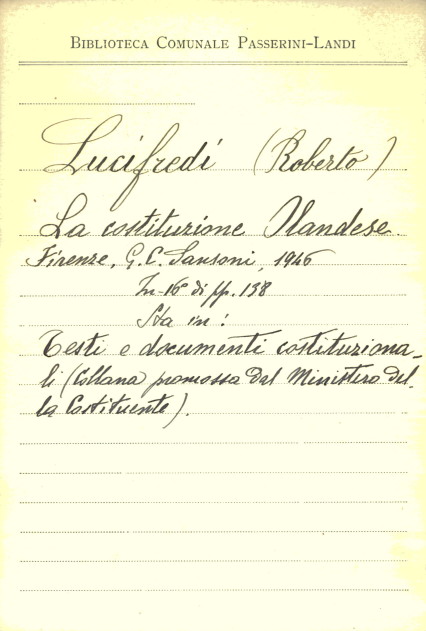 BIBLIOTECA COMUNALE PASSERINI-LANDI
Lucifredi (Roberto)
La costituzione Olandese.
Firenze, G. C. Sansoni, 1946
In-16° di pp. 138
Sta in:
Testi e documenti costituziona-
li (Collana promossa dal Ministero del-
la Costituente).